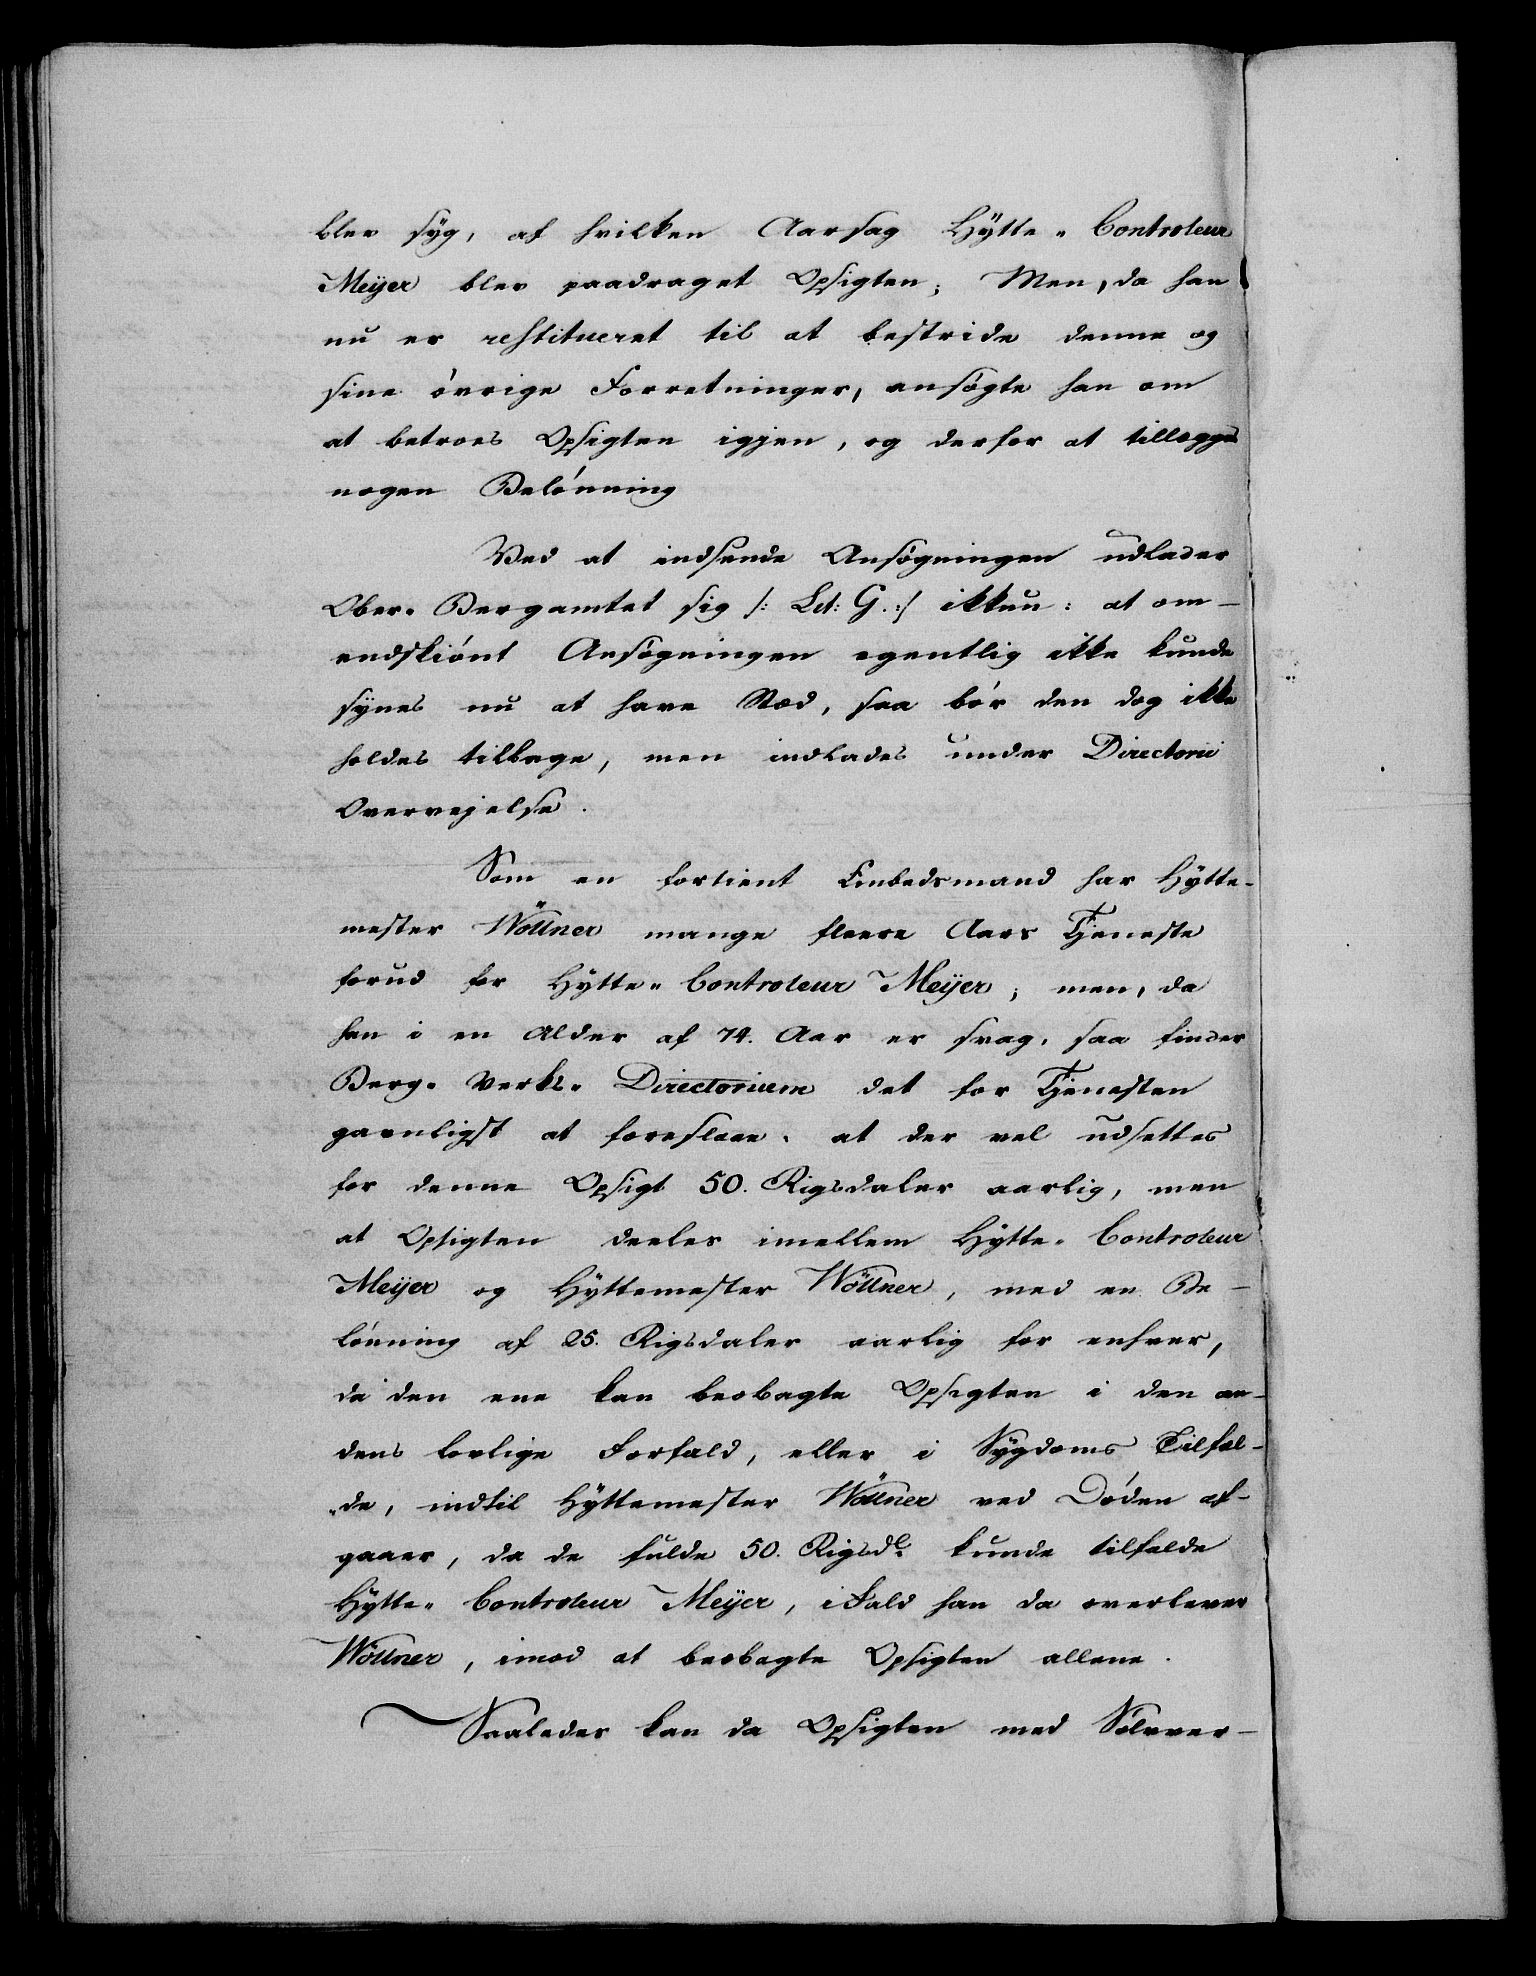 blev syg, af hvilken Aarsag Hytte-Controleur
Meyer blev paadraget Opsigten; Men, da han
nu er restitueret til at bestride denne og
sine övrige Forretninger, ansögte han om
at betroes Opsigten igjen, og derfor at tillægges
nogen Belönning
Ved at indsende Ansögningen udlader
Ober-Bergamtet sig /: Lit: G. :/ ikkun: at om-
endskiönt Ansögningen egentlig ikke kunde
synes nu at have Stæd, saa bör den dog ikke
holdes tilbage, men indlades under Directorii
Overvejelse.
Som en fortient Embedsmand har Hytte-
mester Wöllner mange fleere Aars Tjeneste
forud for Hytte-Controleur Meyer; men, da
han i en Alder af 74. Aar er svag, saa finder
Berg-Verks-Directorium det for Tjenesten
gavnligst at foreslaae, at der vel udsettes
for denne Opsigt 50. Rigsdaler aarlig, men
at Opsigten deeles imellem Hytte-Controleur
Meyer og Hyttemester Wöllner, med en Be-
lönning af 25. Rigsdaler aarlig for enhver,
da den ene kan beobagte Opsigten i den an-
dens lovlige Forfald, eller i Sygdoms Tilfæl-
de, indtil Hyttemester Wöllner ved Döden af-
gaaer, da de fulde 50. Rigsdr kunde tilfalde
Hytte-Controleur Meyer, i Fald han da overlever
Wöllner, imod at beobagte Opsigten allene.
Saaledes kan da Opsigten med Sölvver-